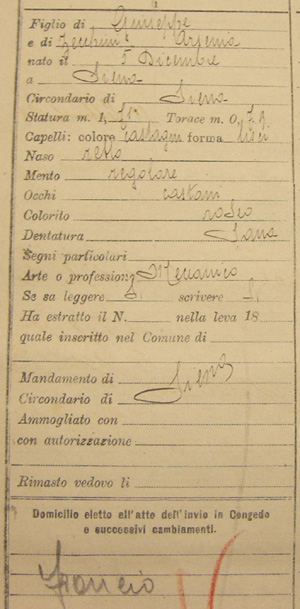 Figlio di Giuseppe
e di Zecchini Arsenia
nato il 5 Dicembre
a Siena
Circondario di Siena
Statura m. 1, Torace m. 0,
Capelli: colore castagni forma lisci
Naso retto
Mento regolare
Occhi castani
Colorito roseo
Dentatura sana
Segni particolari
Arte o professione Meccanico
Se sa leggere Si scrivere Si
Ha estratto il N. nella leva 18
quale inscritto nel Comune di
Mandamento di
Circondario di Siena
Ammogliato con
con autorizzazione
Rimasto vedovo li
Domicilio eletto all'atto dell'invio in Congedo
e successivi cambiamenti.